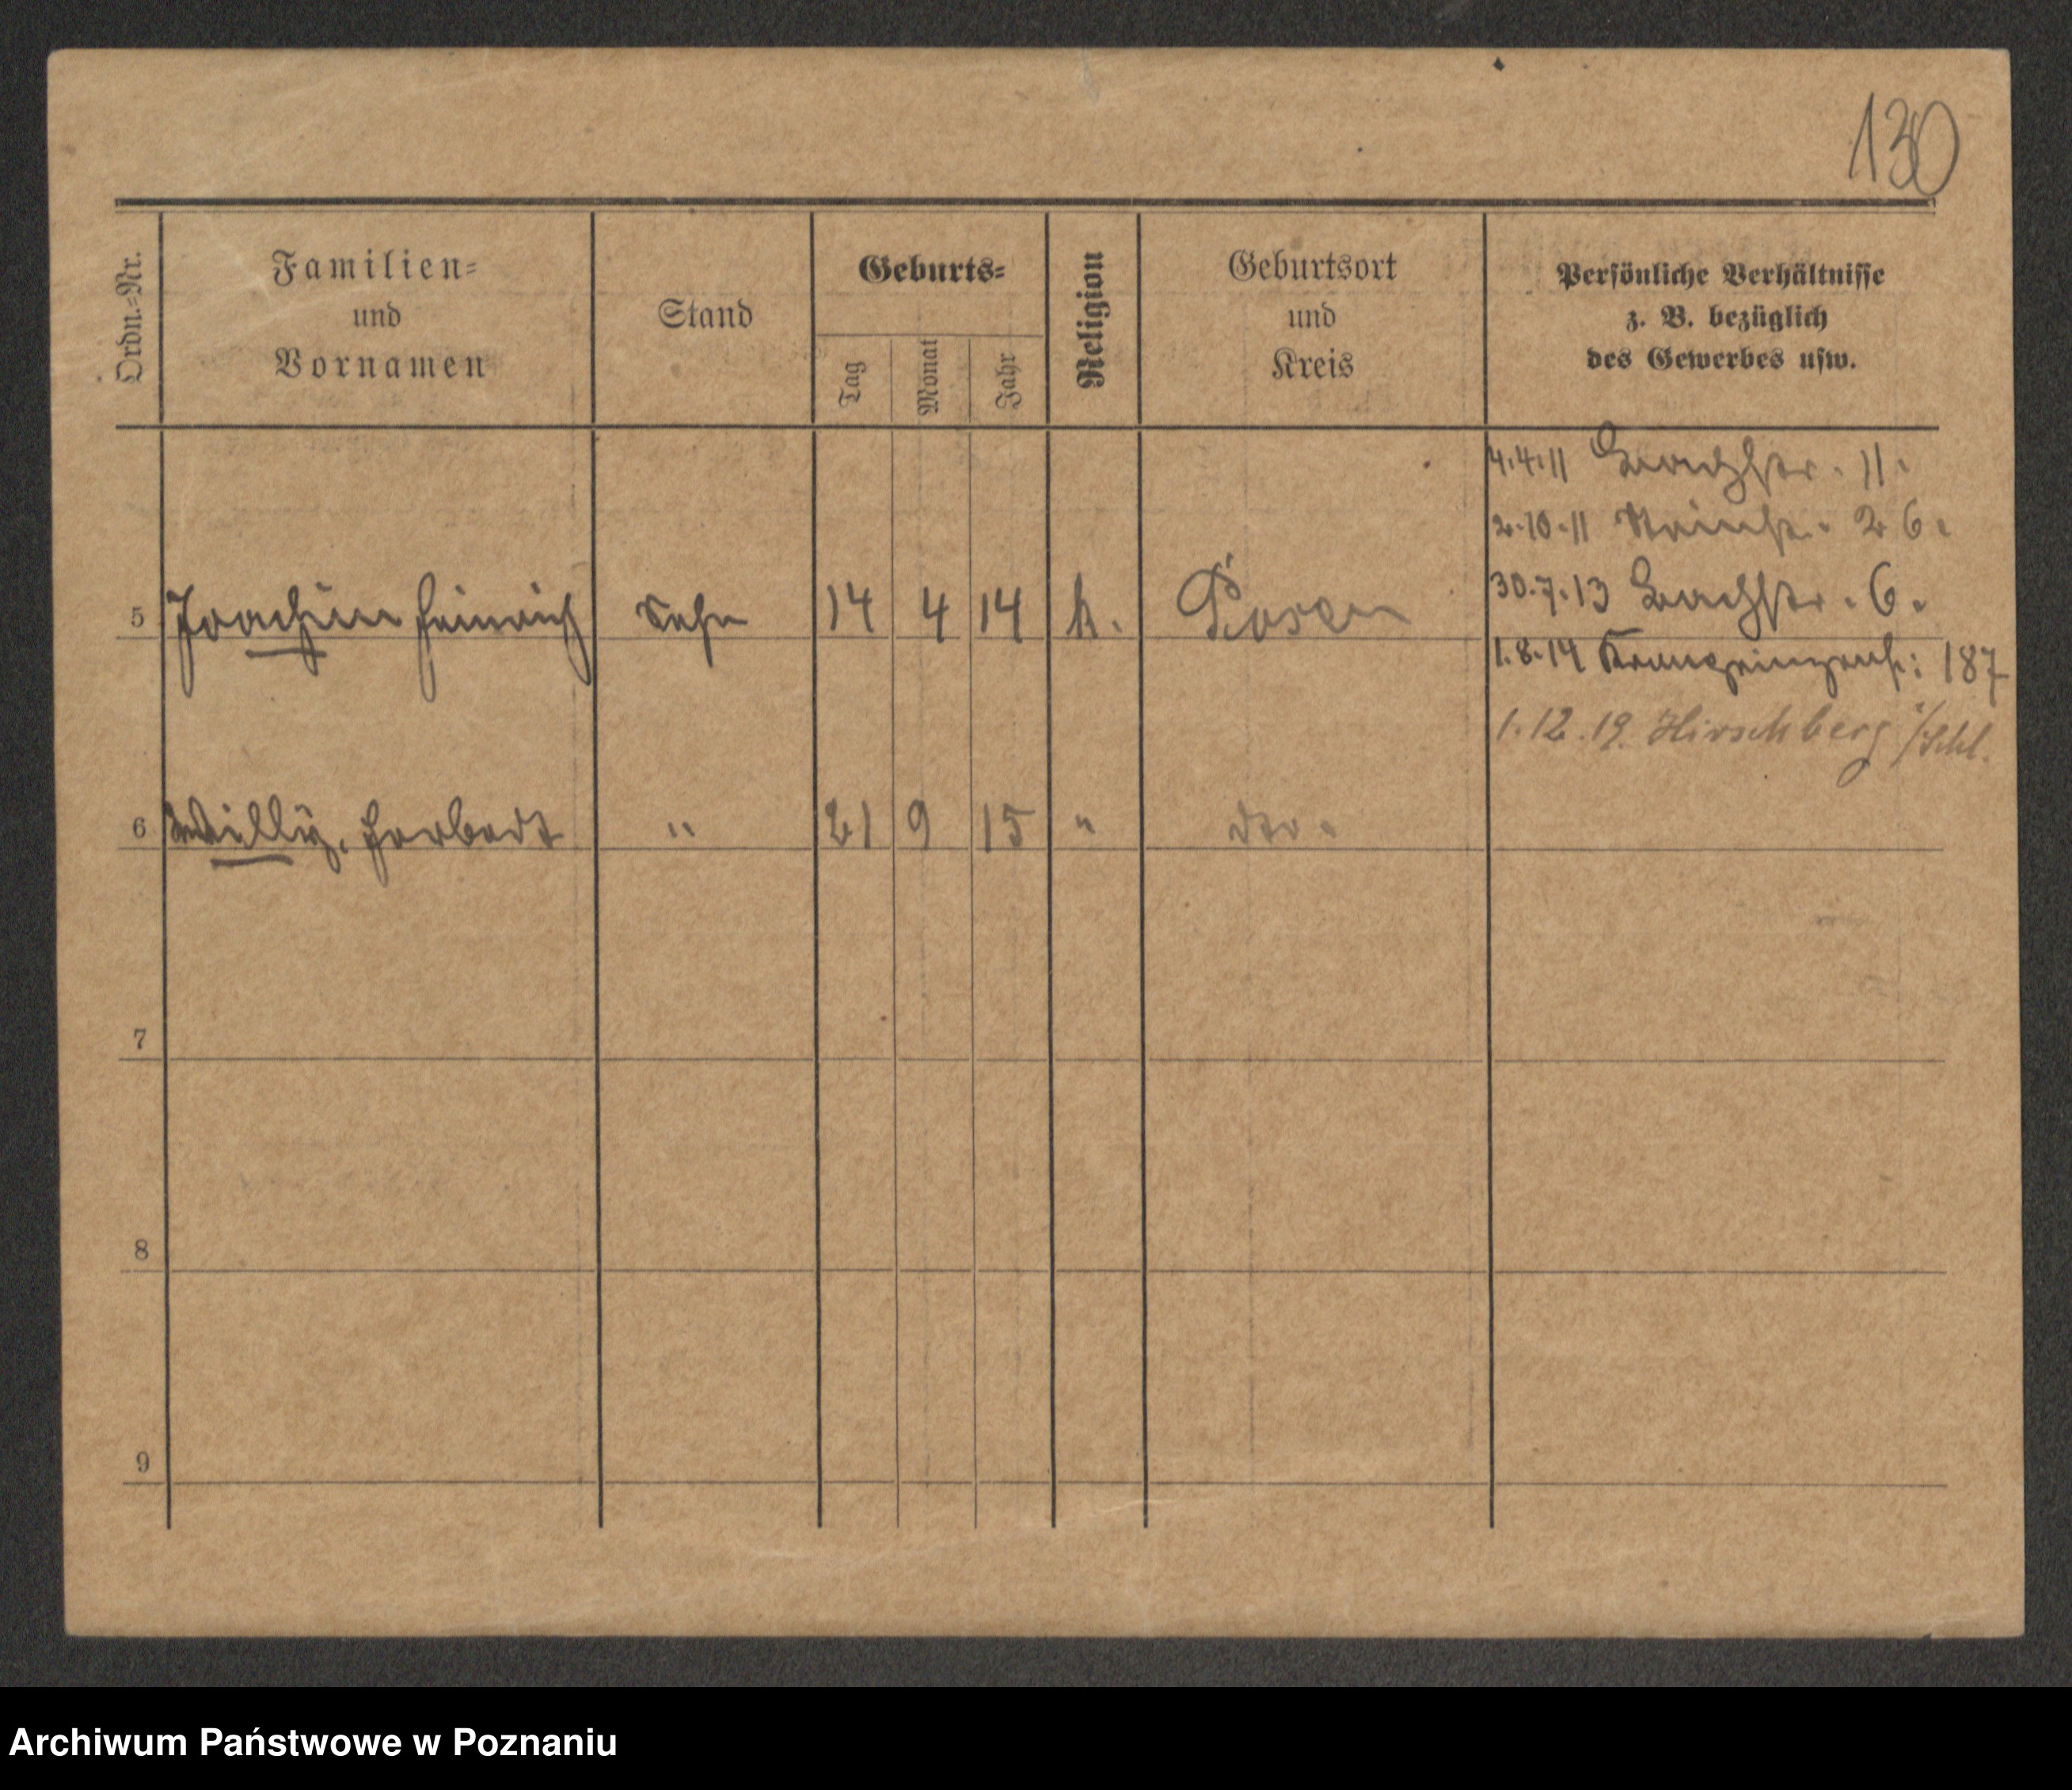 130
Ordn.=Nr.
Familien=
und
Vornamen
Stand
Geburts=
Tag
Monat
Jahr
Religion
Geburtsort
und
Kreis
Persönliche Verhältnisse
z. B. bezüglich
des Gewerbes usw.
4.4.11 Bachstr. 11.
2.10.11 26.
30.7.13 Bachstr. 6.
5 Joachim Heinrich Sohn 14 4 14 k. Posen
1.8.14 Kronprinzenst: 187
1.12.19. Hirschberg i/Schl.
6 Willy, Herbert " 21 9 15 " dto.
7
8
9
Archiwum Państwowe w Poznaniu